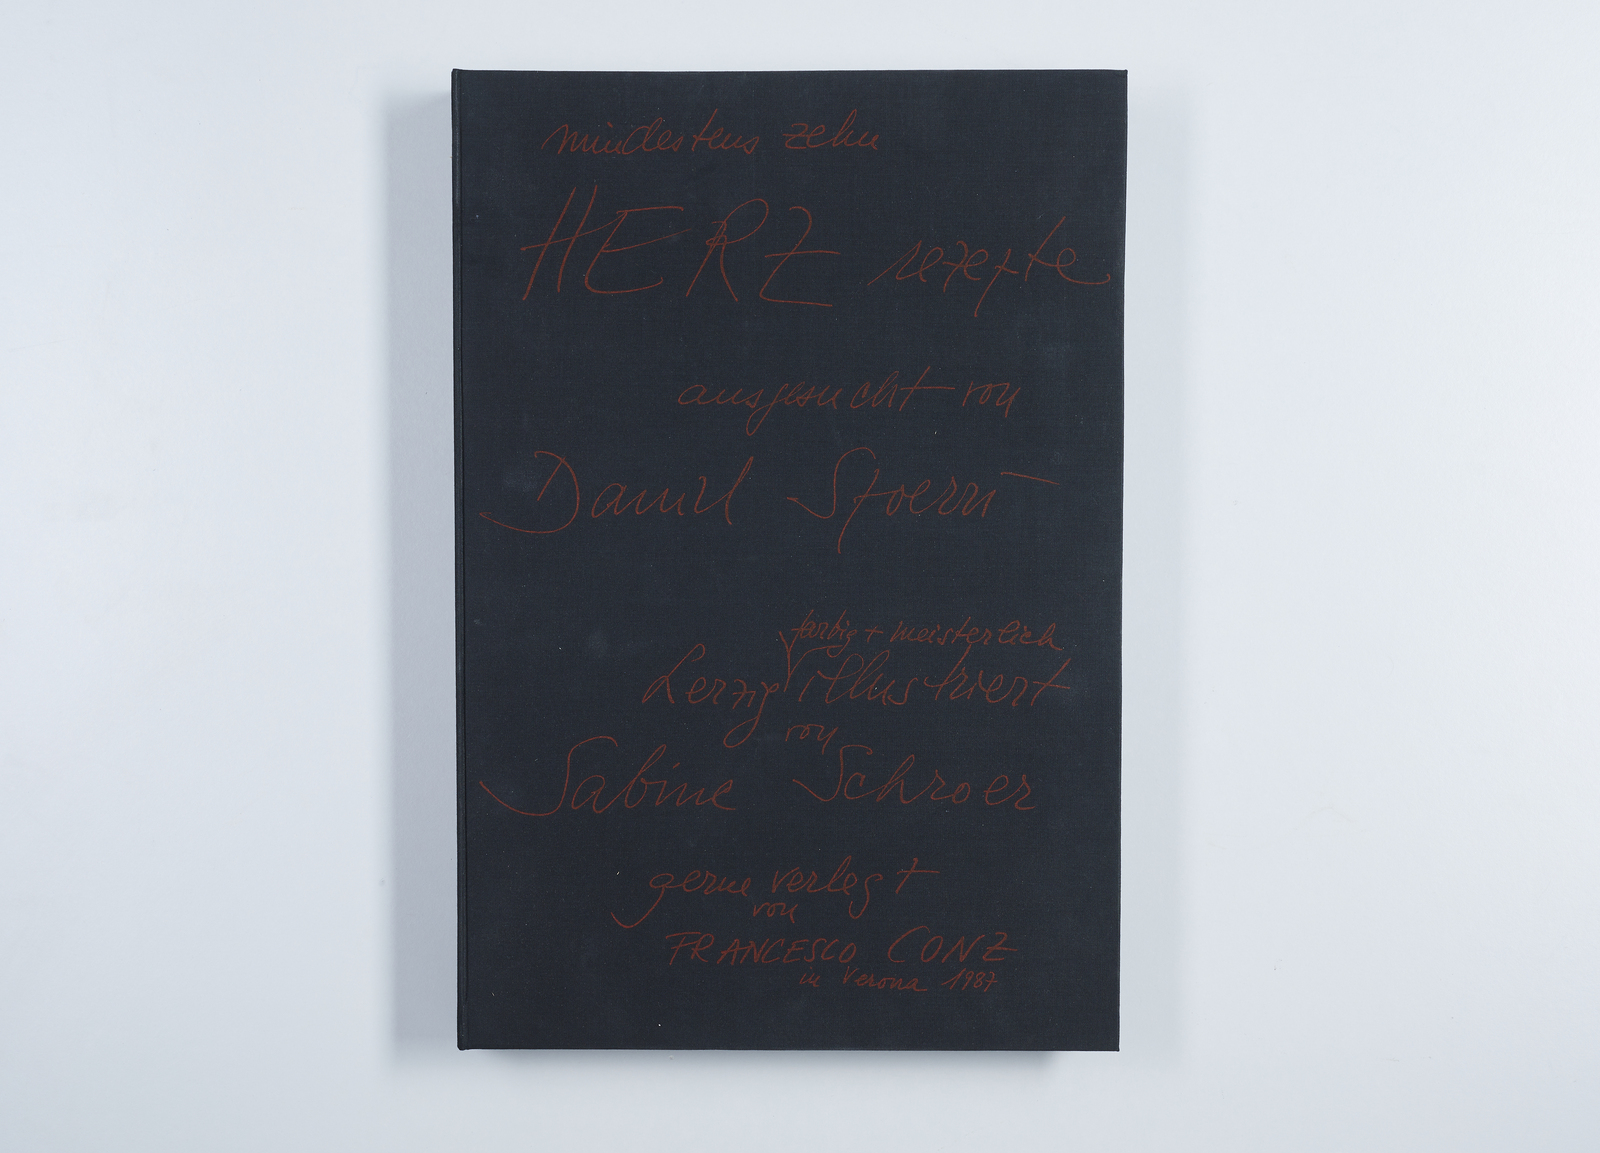 mindestens zehn
HERZ rezepte
ausgesucht von
Daniel Spoerri
farbig + meisterlich
herzig illustriert
von
Sabine Schroer
gerne verlegt
von
FRANCESCO CONZ
in Verona 1987